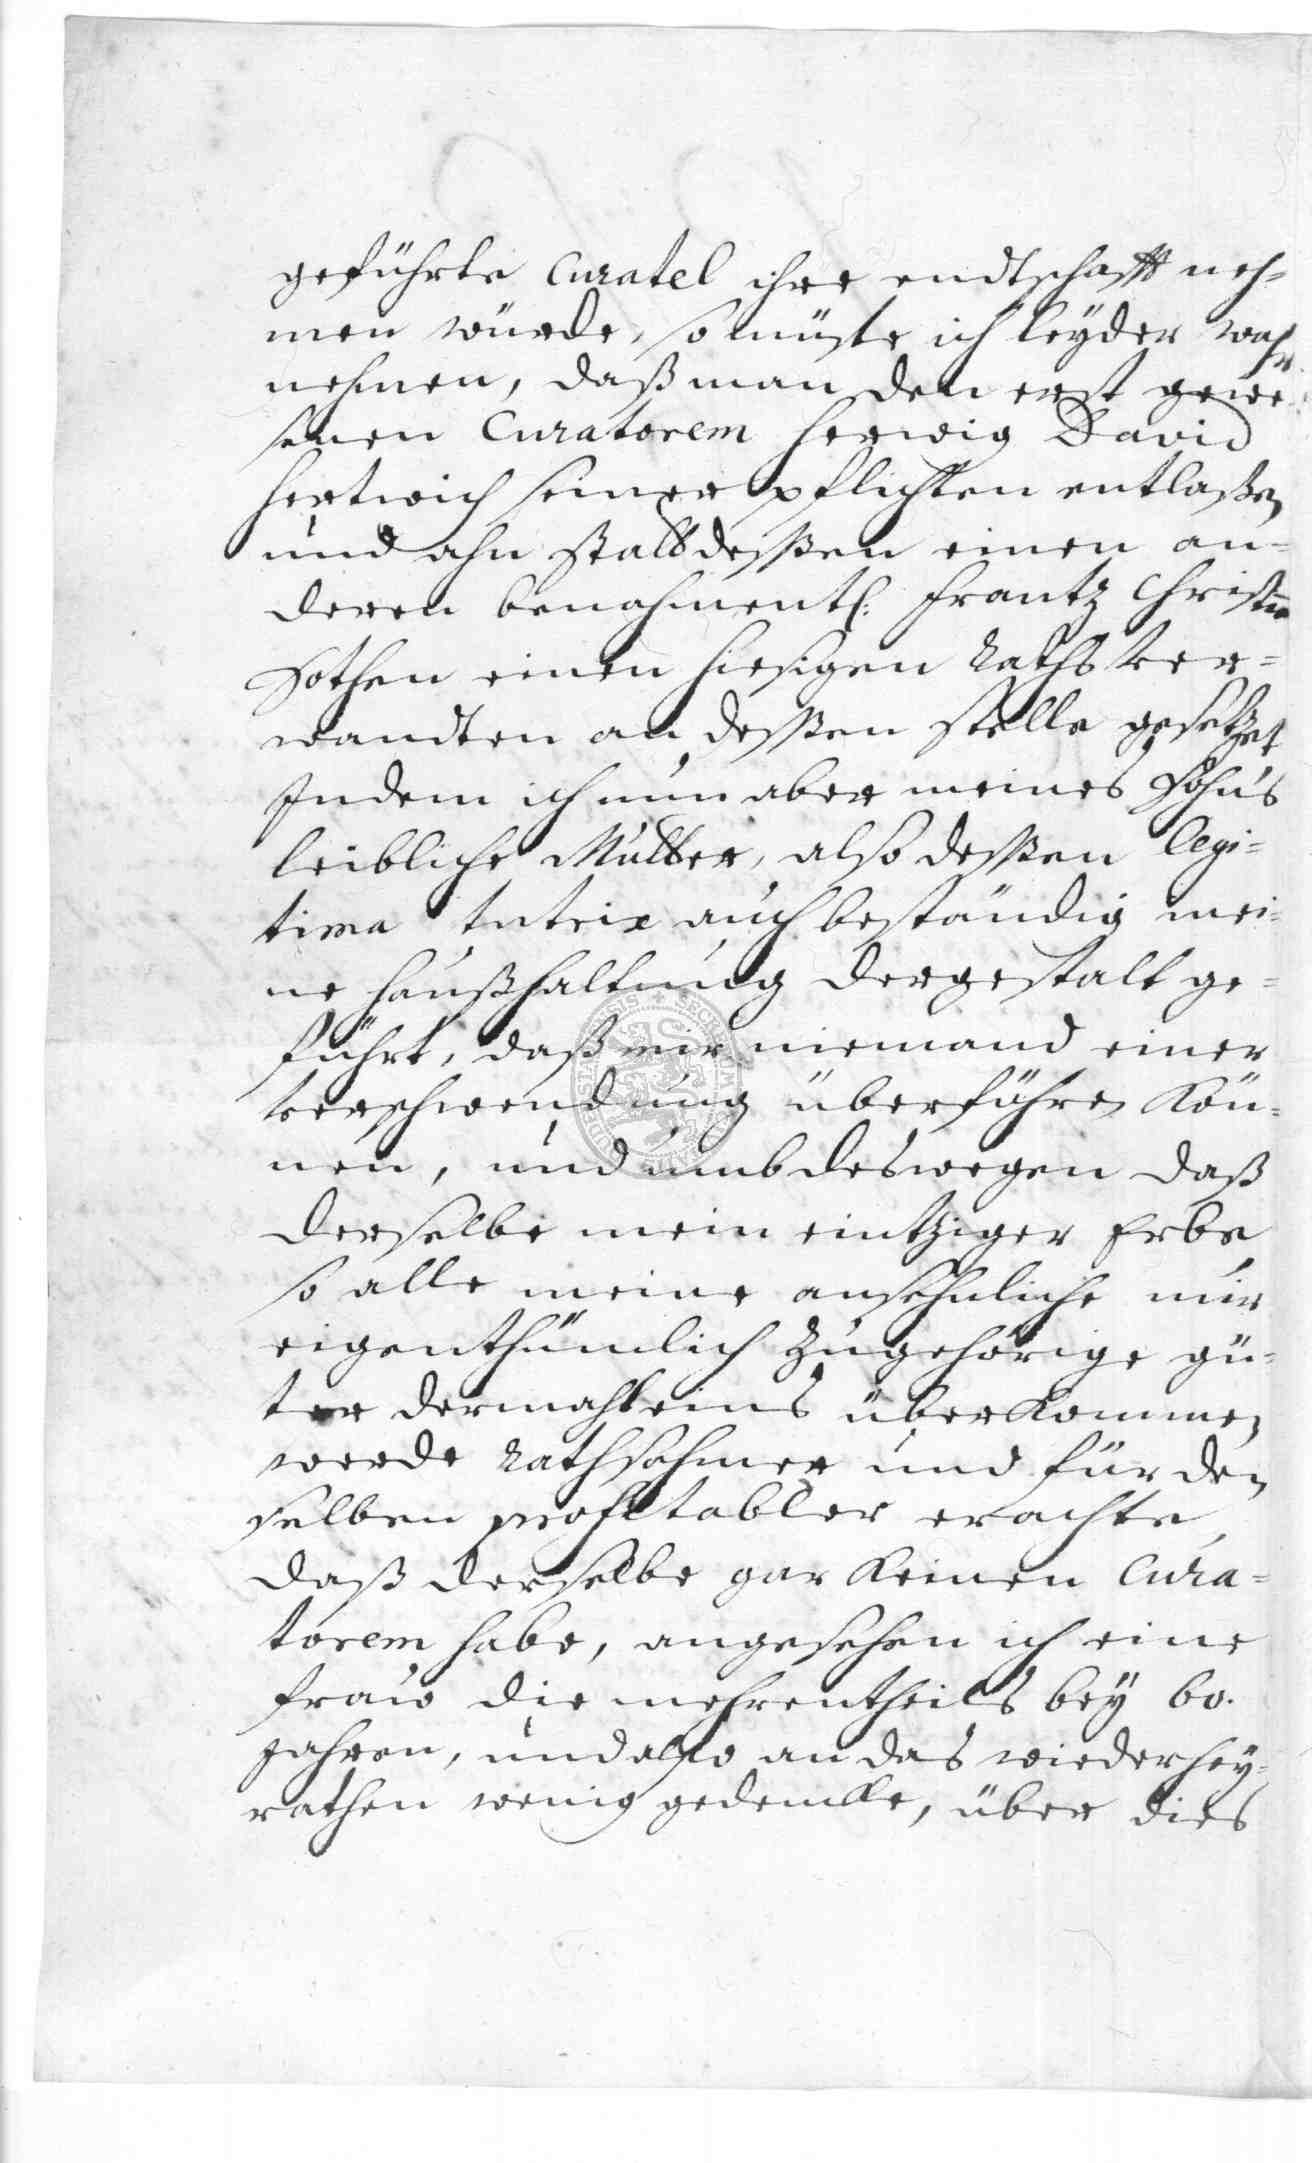 geführte Curatel ihre endtschafft neh=
men würde, so müste ich leyder wahr
nehmen, daß man den erst gewe=
senen Curatorem Herwig David
Hertwich seiner pflichten entlaßen
und ahn statt deßen einen an=
deren benahmentl: Frantz Christian
Hothen einen hiesigen Rathsver=
wandten an deßen stelle gesetzet
Indem ich nun aber meines Sohns
leibliche Mutter, also deßen legi=
tima tutrix auch beständig mei=
ne haußhaltung dergestalt ge=
führt, daß mir niemand einer
verschwendung überführen kön=
nen, und umb deswegen daß
derselbe mein eintziger Erbe
so alle meine ansehnliche mir
eigenthümlich zugehörige gü=
ter dermahleins überkommen
werde rathsahmer und für den
selben profitabler erachte,
daß derselbe gar keinen Cura=
torem habe, angesehen ich eine
fraw die mehrentheils bey 60.
Jahren, und also an das wiederhey=
rathen wenig gedencke, über dies
SECRETUM